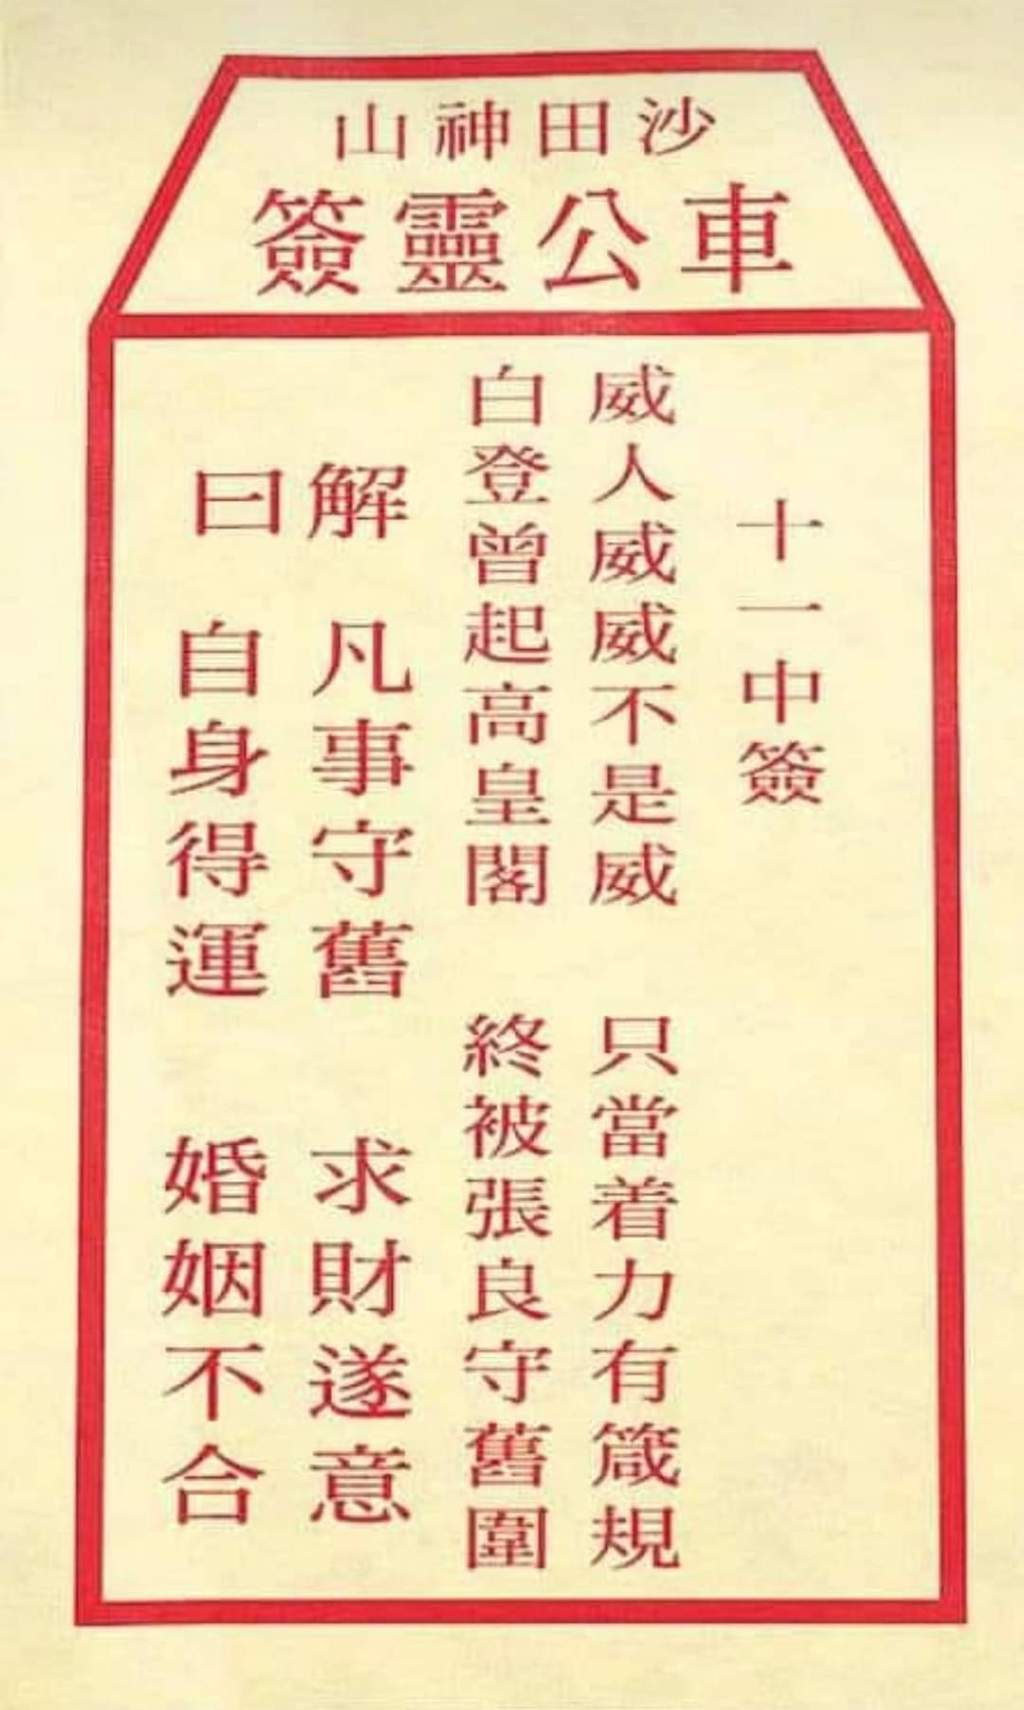 沙田神山
車公靈簽
十一中簽
威人威威不是威　只當着力有箴規
白登曾起高皇閣　終被張良守舊圍
解　凡事守舊　求財遂意
曰　自身得運　婚姻不合